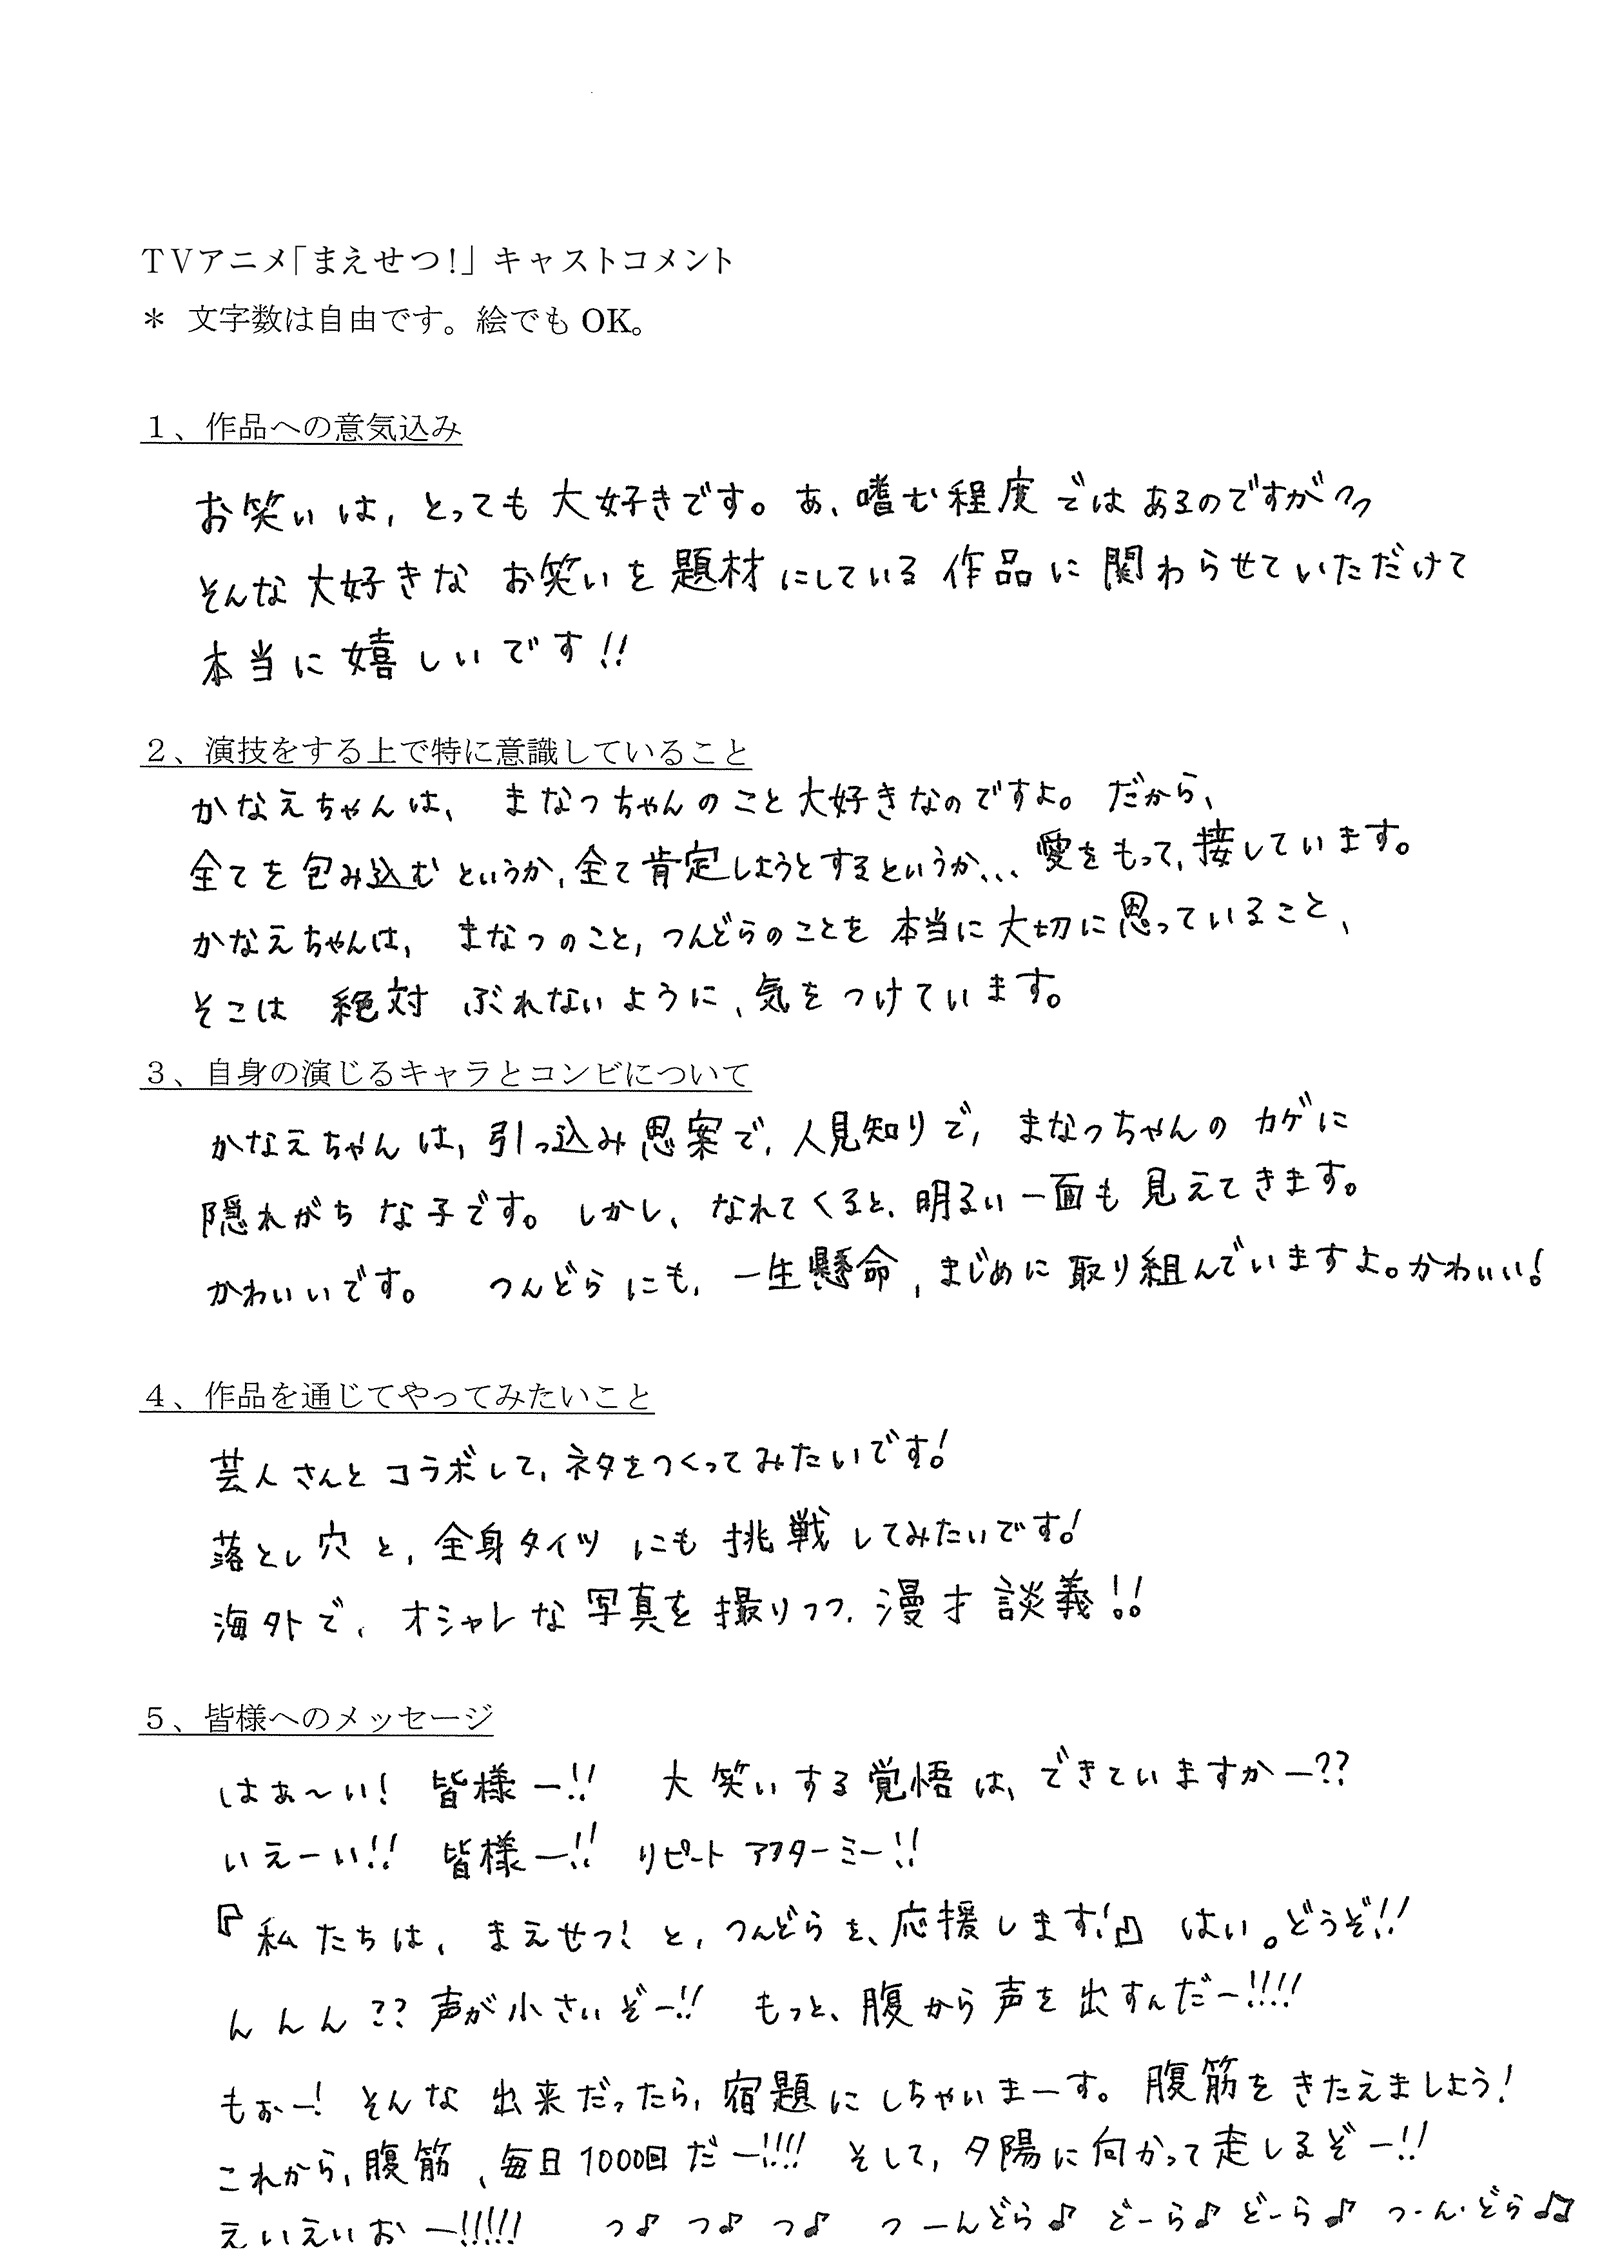 TVアニメ「まえせつ!」キャストコメント
＊ 文字数は自由です。絵でも OK。
１、作品への意気込み
お笑いは、とっても大好きです。あ、嗜む程度ではあるのですがクク
そんな大好きな お笑いを題材にしている作品に関わらせていただけて
本当に嬉しいです!!
２、演技をする上で特に意識していること
かなえちゃんは、まなつちゃんのこと大好きなのですよ。だから、
全てを包み込むというか、全て肯定しようとするというか、、、愛をもって、接しています。
かなえちゃんは、まなつのこと、つんどらのことを本当に大切に思っていること、
そこは 絶対 ぶれないように、気をつけています。
３、自身の演じるキャラとコンビについて
かなえちゃんは、引っ込み思案で、人見知りで、まなつちゃんのカゲに
隠れがちな子です。しかし、なれてくると、明るい一面も見えてきます。
かわいいです。 つんどらにも、一生懸命、まじめに取り組んでいますよ。かわいい!
４、作品を通じてやってみたいこと
芸人さんとコラボして、ネタをつくってみたいです!
落とし穴と、全身タイツにも挑戦してみたいです!
海外で、オシャレな写真を撮りつつ、漫才談義!!
５、皆様へのメッセージ
はぁ〜い! 皆様ー!! 大笑いする覚悟は、できていますかー??
いえーい!! 皆様ー!! リピートアフターミー!!
『私たちは、まえせつ!と、つんどらを、応援します!』はい。どうぞ!!
んんん??声が小さいぞー!! もっと、腹から声を出すんだー!!!!
もぉー! そんな出来だったら、宿題にしちゃいまーす。腹筋をきたえましよう!
これから、腹筋、毎日1000回だー!!!! そして、夕陽に向かって走しるぞー!!
えいえいおー!!!!! つ♪ つ♪ つ♪ つーんどら♪ どーら♪ どーら♪ つ・ん・どら♪♫